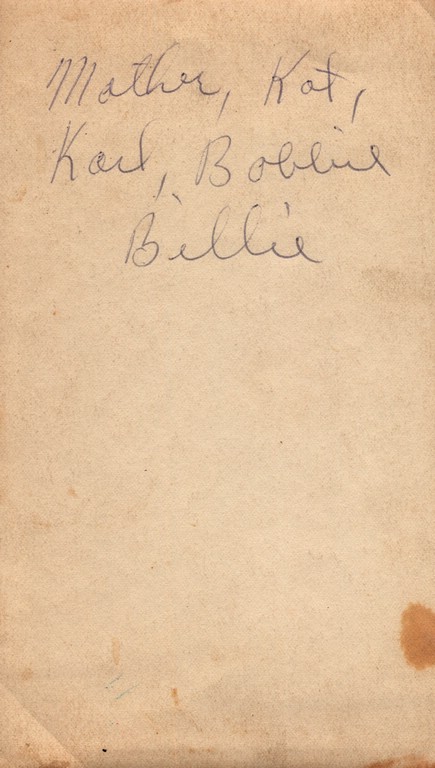 Mother, Kat,
Karl, Bobbie
Billie